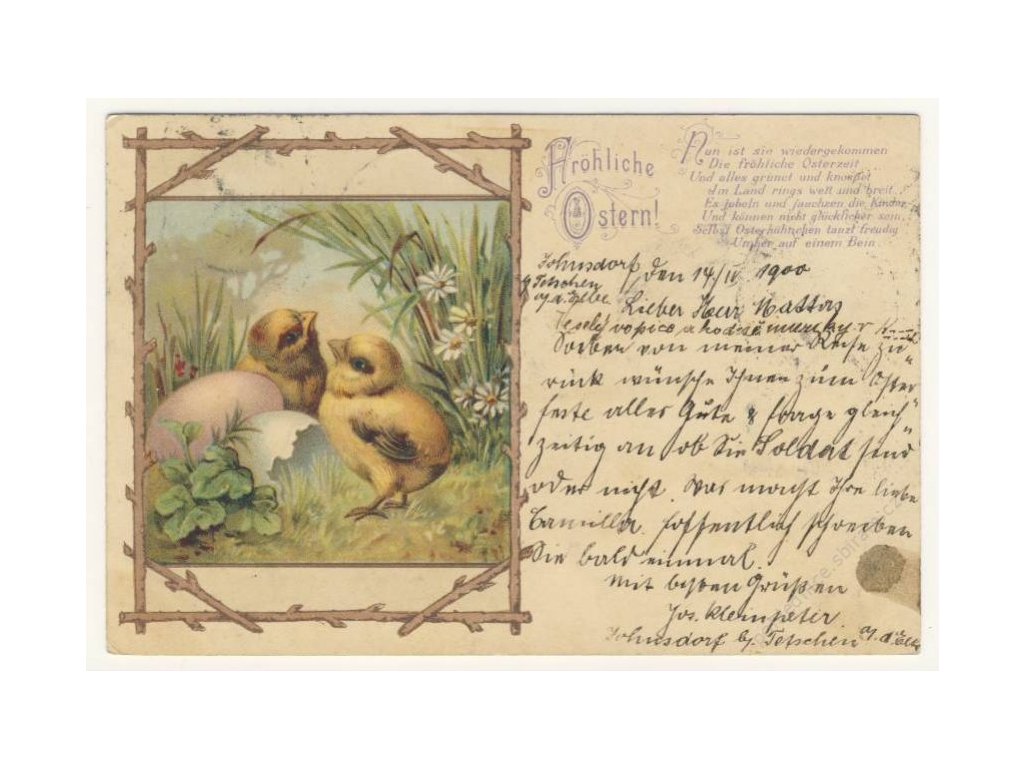 Fröhliche
Ostern!
Nun ist sie wiedergekommen
Die fröhliche Osterzeit
Und alles grünet und knospet
Im Land rings weit und breit.
Es jubeln und jauchzen die Kinder
Und können nicht glücklicher sein,
Selbst Osterhühnchen tanzt freudig
Umher auf einem Bein.
Johnsdorf, den 14/IV 1900
b/ Tetschen
a/d. Elbe
Lieber Herr
Veselý
Soeben von meiner Reise zu"
rück wünsche Ihnen zum Oster
feste alles Gute & frage gleich"
zeitig an ob Sie Soldat sind
oder nicht. Was macht Ihre liebe
Camilla. Hoffentlich schreiben
Sie bald einmal.
Mit besten Grüßen
Jos. Kleinpeter
Johnsdorf b/. Tetschen a/. d. Elbe